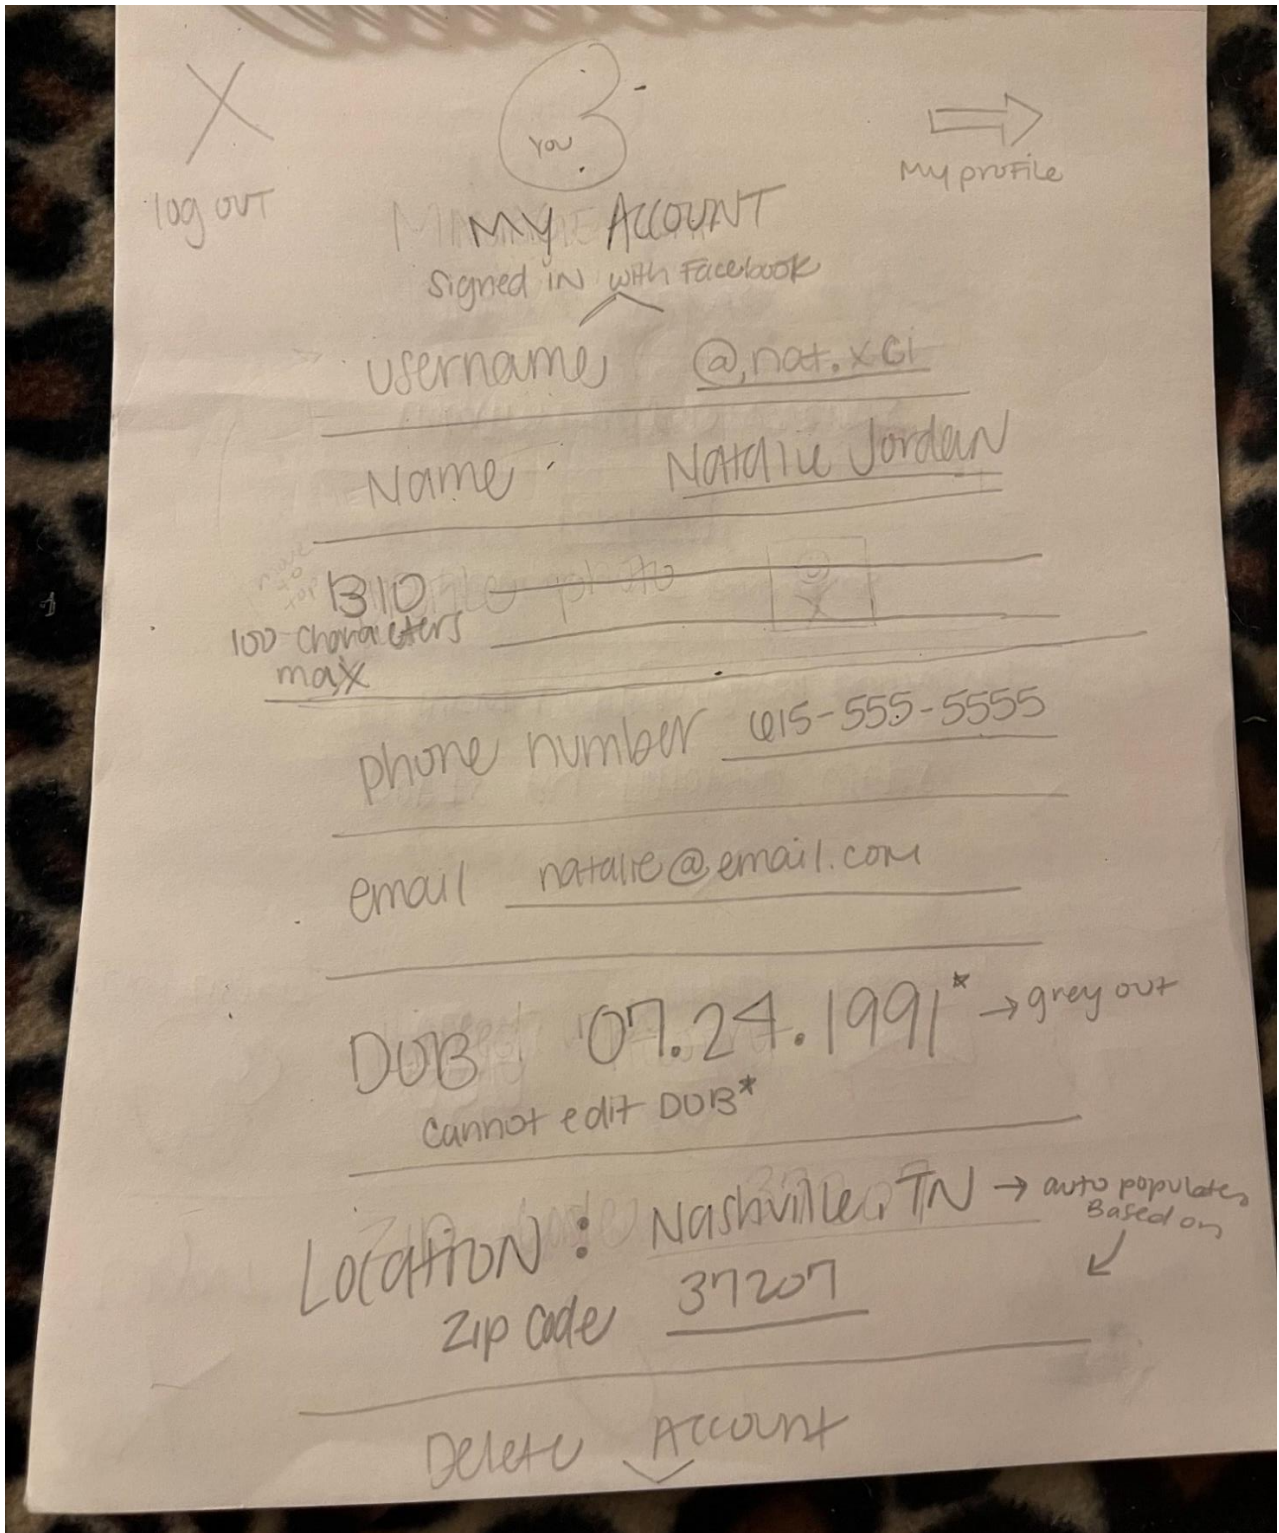 X
You
log out
My profile
MY ACCOUNT
Signed in with Facebook
username @nat.xci
Name Natalie Jordan
move
to
top
BIO profile photo
100 characters
max
phone number 615-555-5555
email natalie@email.com
DOB 07.24.1991* → grey out
Cannot edit DOB*
Location: Nashville, TN → auto populates
Based on
Zip code 37207
Delete Account